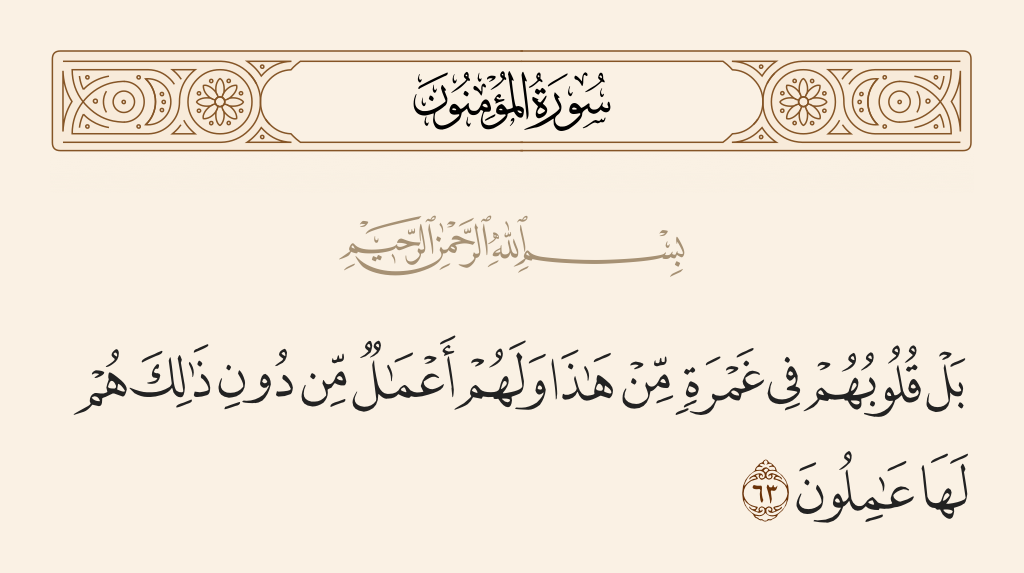 سُورَةُ الْمُؤْمِنُونَ
بِسْمِ ٱللَّهِ ٱلرَّحْمَٰنِ ٱلرَّحِيمِ
بَلْ قُلُوبُهُمْ فِى غَمْرَةٍ مِّنْ هَٰذَا وَلَهُمْ أَعْمَٰلٌ مِّن دُونِ ذَٰلِكَ هُمْ
لَهَا عَٰمِلُونَ ٦٣